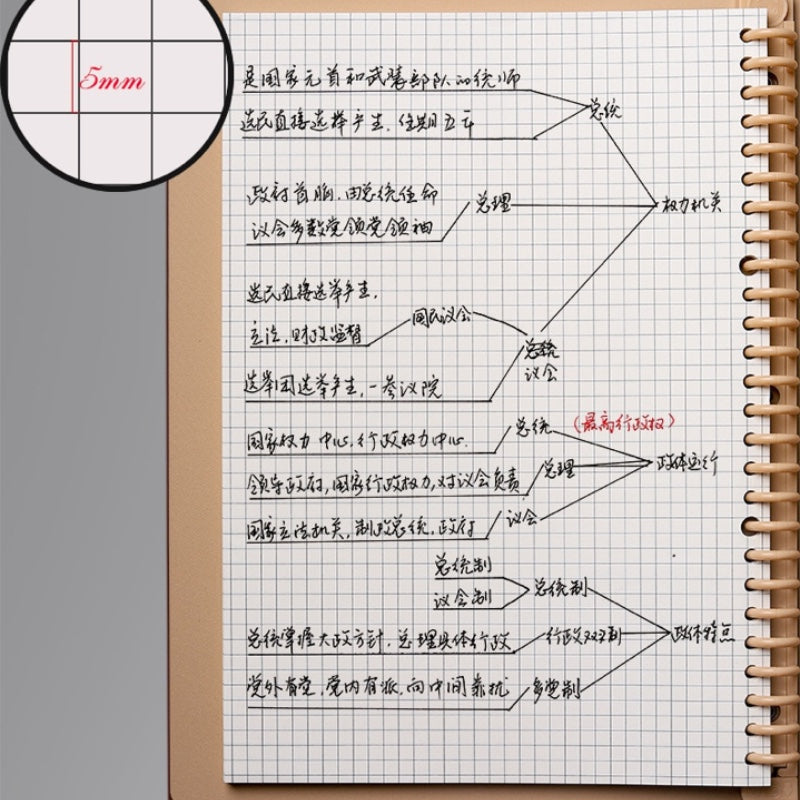 5mm
是国家元首和武装部队的统师
选民直接选举产生,任期五年
总统
政府首脑,由总统任命
总理
权力机关
议会多数党领党领袖
选民直接选举产生,
国民议会
立法,财政监督
总统
议会
选举团选举产生,一参议院
总统
(最高行政权)
国家权力中心,行政权力中心.
总理
政体运行
领导政府,国家行政权力,对议会负责
议会
国家立法机关,制政总统,政府
总统制
总统制
议会制
总统掌握大政方针,总理具体行政
行政双头制
政体特点
党外有党,党内有派,向中间靠拢
多党制